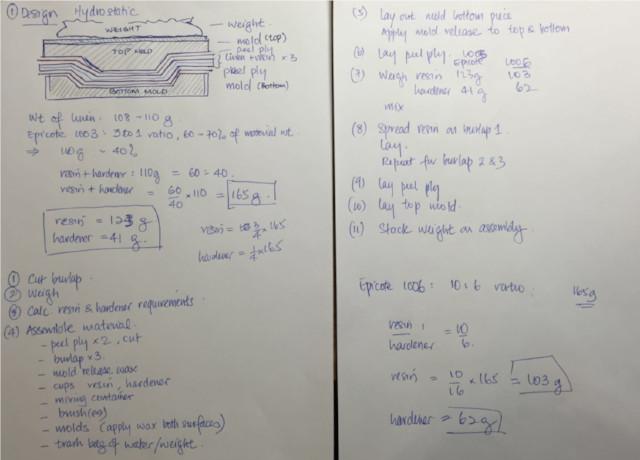 ① Design Hydrostatic
WEIGHT
TOP MOLD
BOTTOM MOLD
weight.
mold (top)
peel ply
linen + resin × 3
peel ply
mold (Bottom)
Wt of linen: 108 - 110 g.
Epicote 1003: 3 to 1 ratio, 60 - 70% of material wt.
⇒ 110g ~ 40%
resin + hardener : 110g = 60 : 40.
resin + hardener = 60/40 × 110 = 165 g.
resin = 123 g
hardener = 41 g.
resin = 3/4 × 165
hardener = 1/4 × 165
① Cut burlap.
② Weigh
③ Calc. resin & hardener requirements.
(4) Assemble material.
- peel ply × 2, cut
- burlap × 3.
- mold release, wax
- cups resin, hardener
- mixing container
- brush(es)
- molds (apply wax both surfaces)
- trash bag of water/weight.
(5) Lay out mold bottom piece
Apply mold release to top & bottom
(6) Lay peel ply.
Epicote 1003 1006
(7) Weigh resin 123g 103
hardener 41 g 62
mix
(8) Spread resin on burlap 1.
Lay.
Repeat for burlap 2 & 3
(9) Lay peel ply
(10) Lay top mold.
(11) Stack weight on assembly.
Epicote 1006 : 10:6 ratio : 165g
resin : hardener = 10/6.
resin = 10/16 × 165 = 103 g
hardener = 62 g